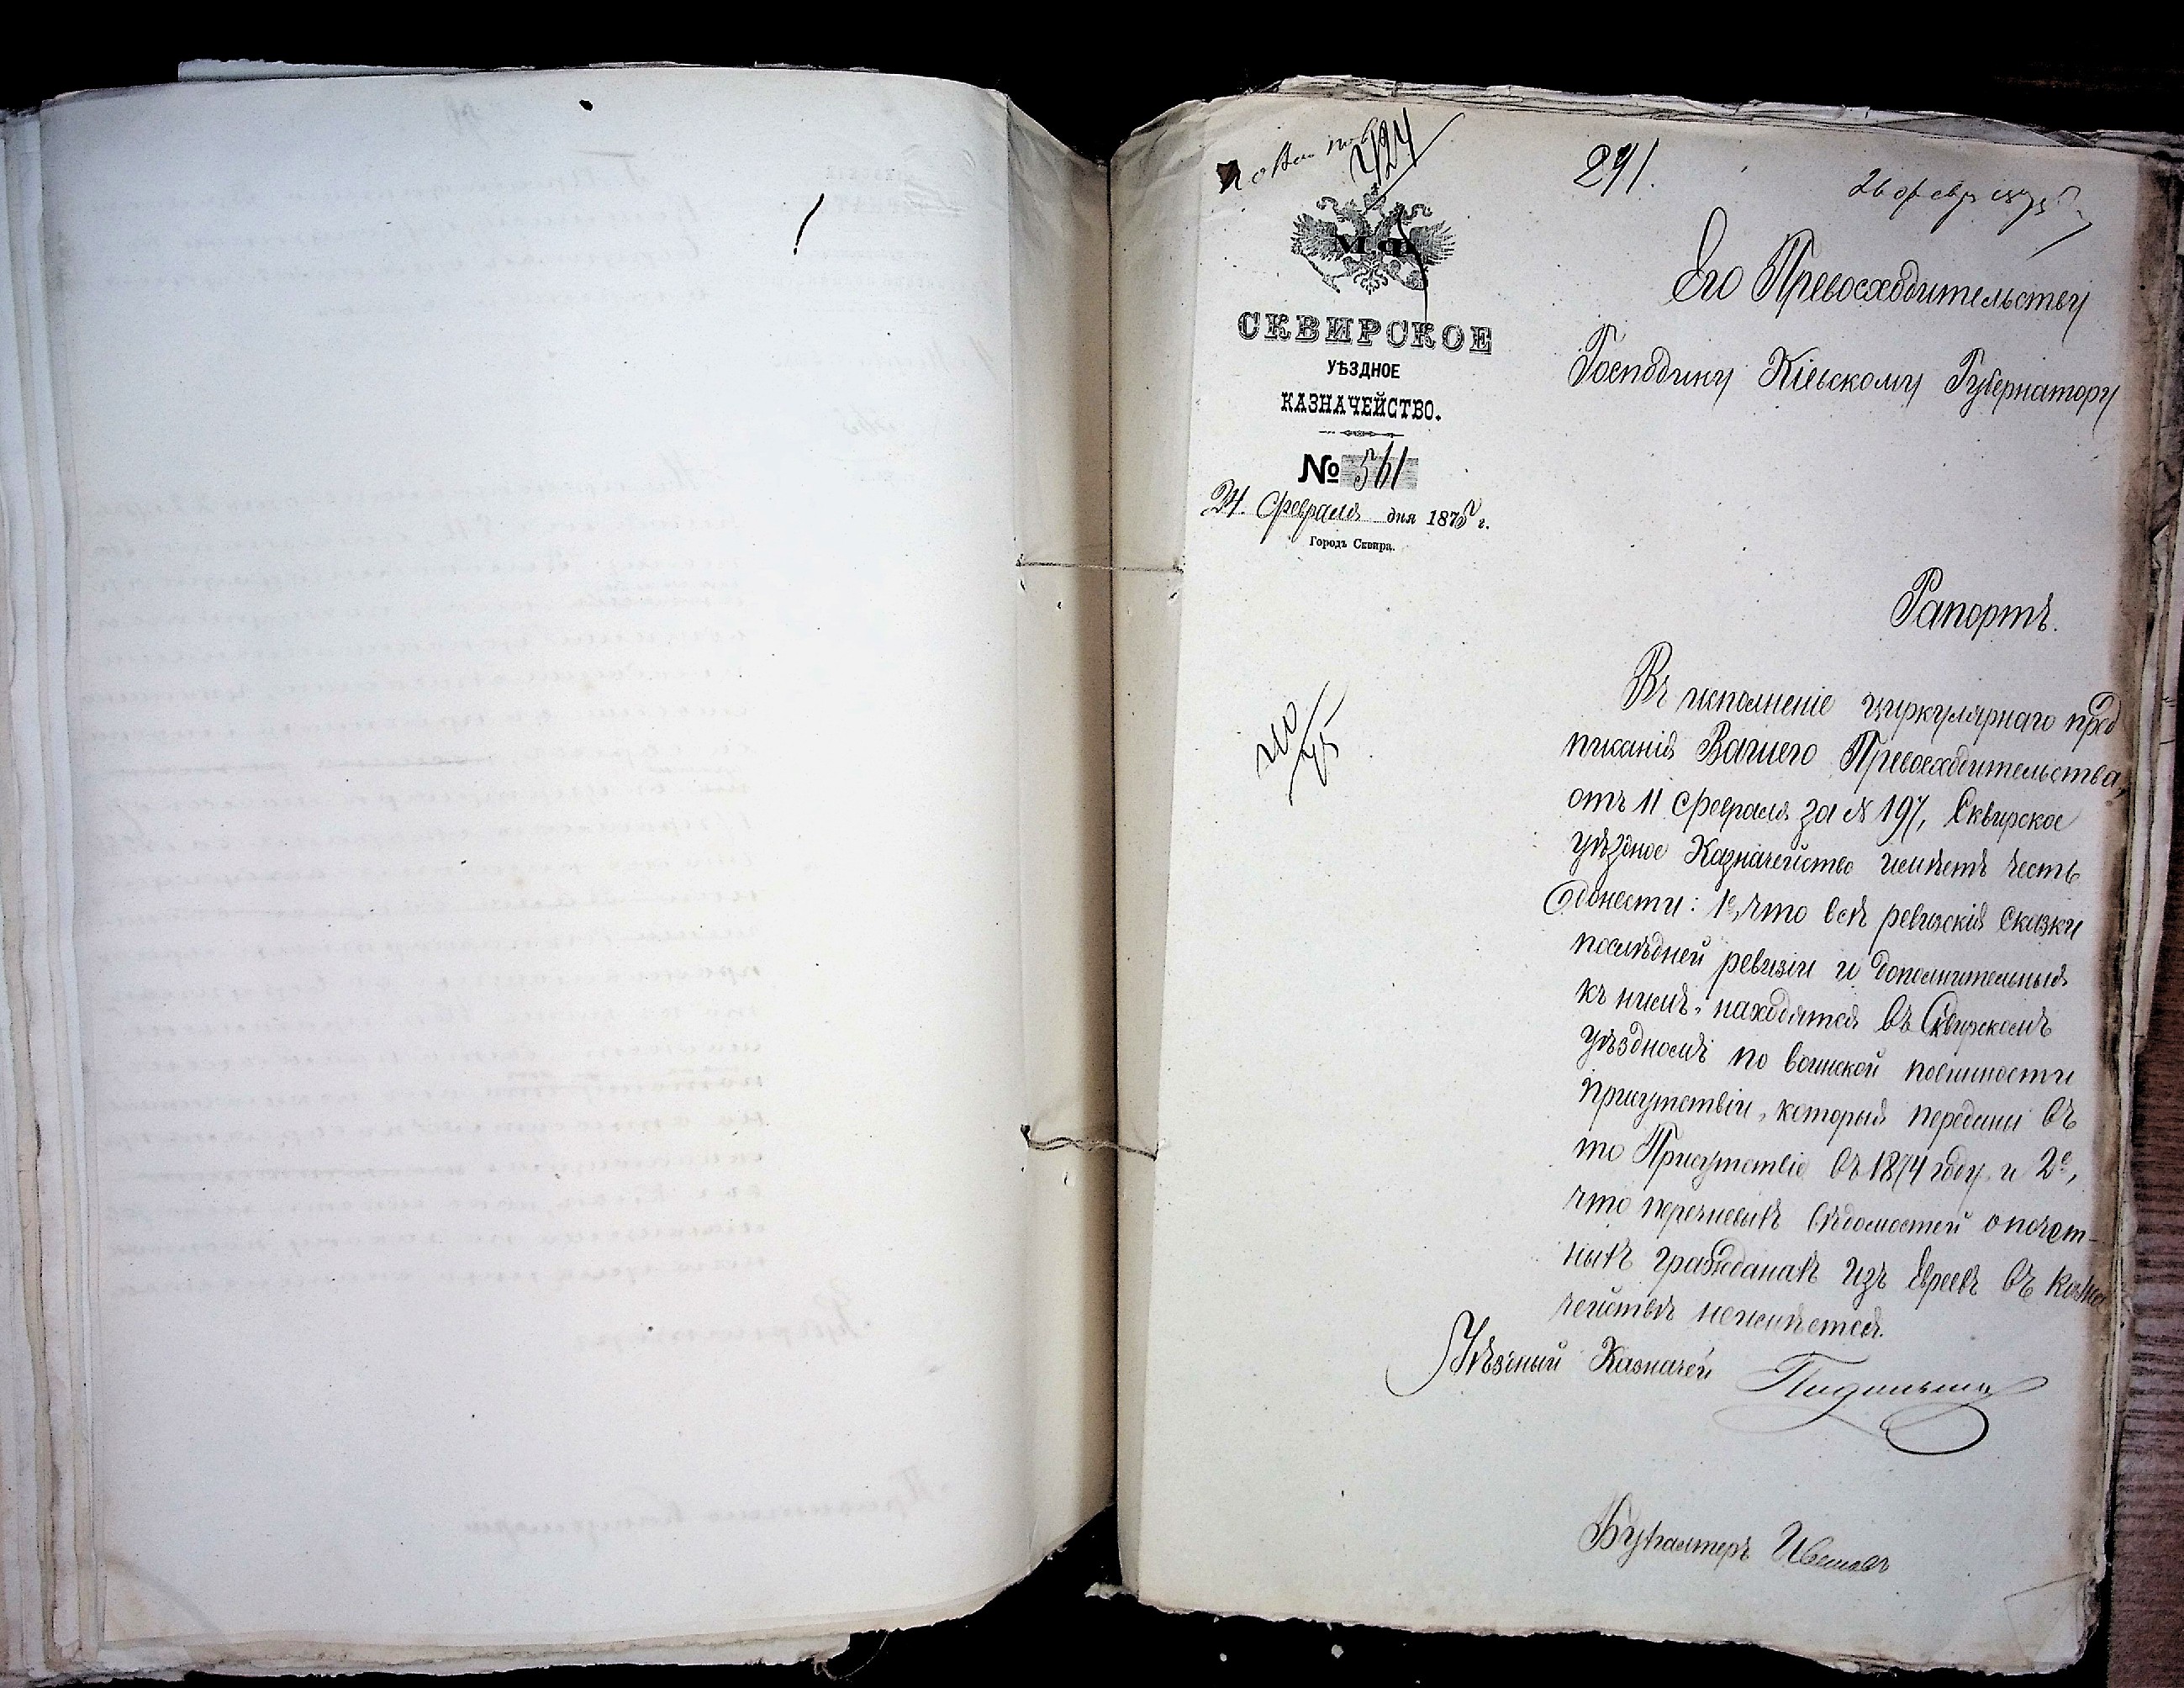 424
291.
26 февр 1875
М.Ф.
Его Превосходительству
СКВИРСКОЕ
Господину Кіевскому Губернатору
УѢЗДНОЕ
КАЗНАЧЕЙСТВО.
№ 561
24 Февраля дня 1875 г.
Городъ Сквира.
Рапортъ.
Въ исполненіе циркулярнаго пред
писанія Вашего Превосходительства,
отъ 11 Февраля за № 197, Сквирское
уѣздное Казначейство имѣетъ честь
донести: 1е, что всѣ ревизскія сказки
послѣдней ревизіи и дополнительныя
къ нимъ, находятся въ Сквирскомъ
уѣздномъ по воинской повинности
присутствіи, которыя переданы въ
то Присутствіе въ 1874 году и 2е,
что перечневыхъ вѣдомостей о почет-
ныхъ гражданахъ изъ Евреевъ въ казна
чействѣ неимѣется.
Уѣздный Казначей
Бухгалтеръ